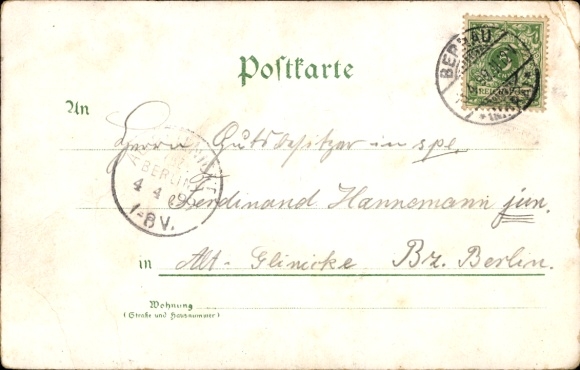 Postkarte
BERNAU
REICHSPOST
An
Herrn Gutsbesitzer in spe.
BERLIN
4 4
7-8 V.
Ferdinand Hannemann jun.
in Alt-Glinicke Bz. Berlin.
Wohnung
(Straße und Hausnummer)